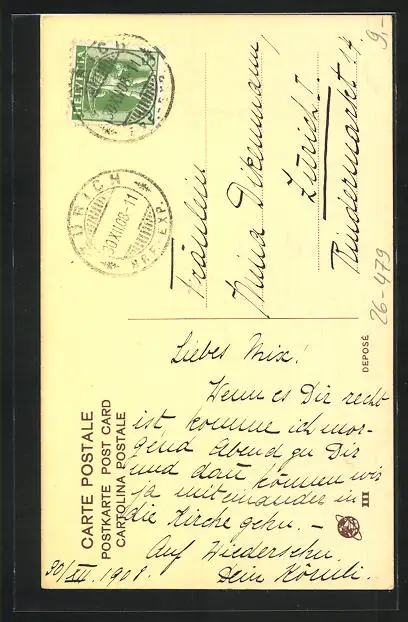 CARTE POSTALE
POSTKARTE POST CARD
CARTOLINA POSTALE
Liebes Mix!
Wenn es Dir recht
ist, komme ich mor-
gend Abend zu Dir
und dann können wir
ja miteinander in
die Kirche gehn. -
Auf Wiedersehn
Dein Körnli.
30/XII. 1908.
III
DEPOSÉ
HELVETIA
ZÜRICH
30.XII.08-11
BRF. EXP.
Fräulein
Mina Dikenmann,
Zürich I.
Rindermarkt 14.
26-479
9,-